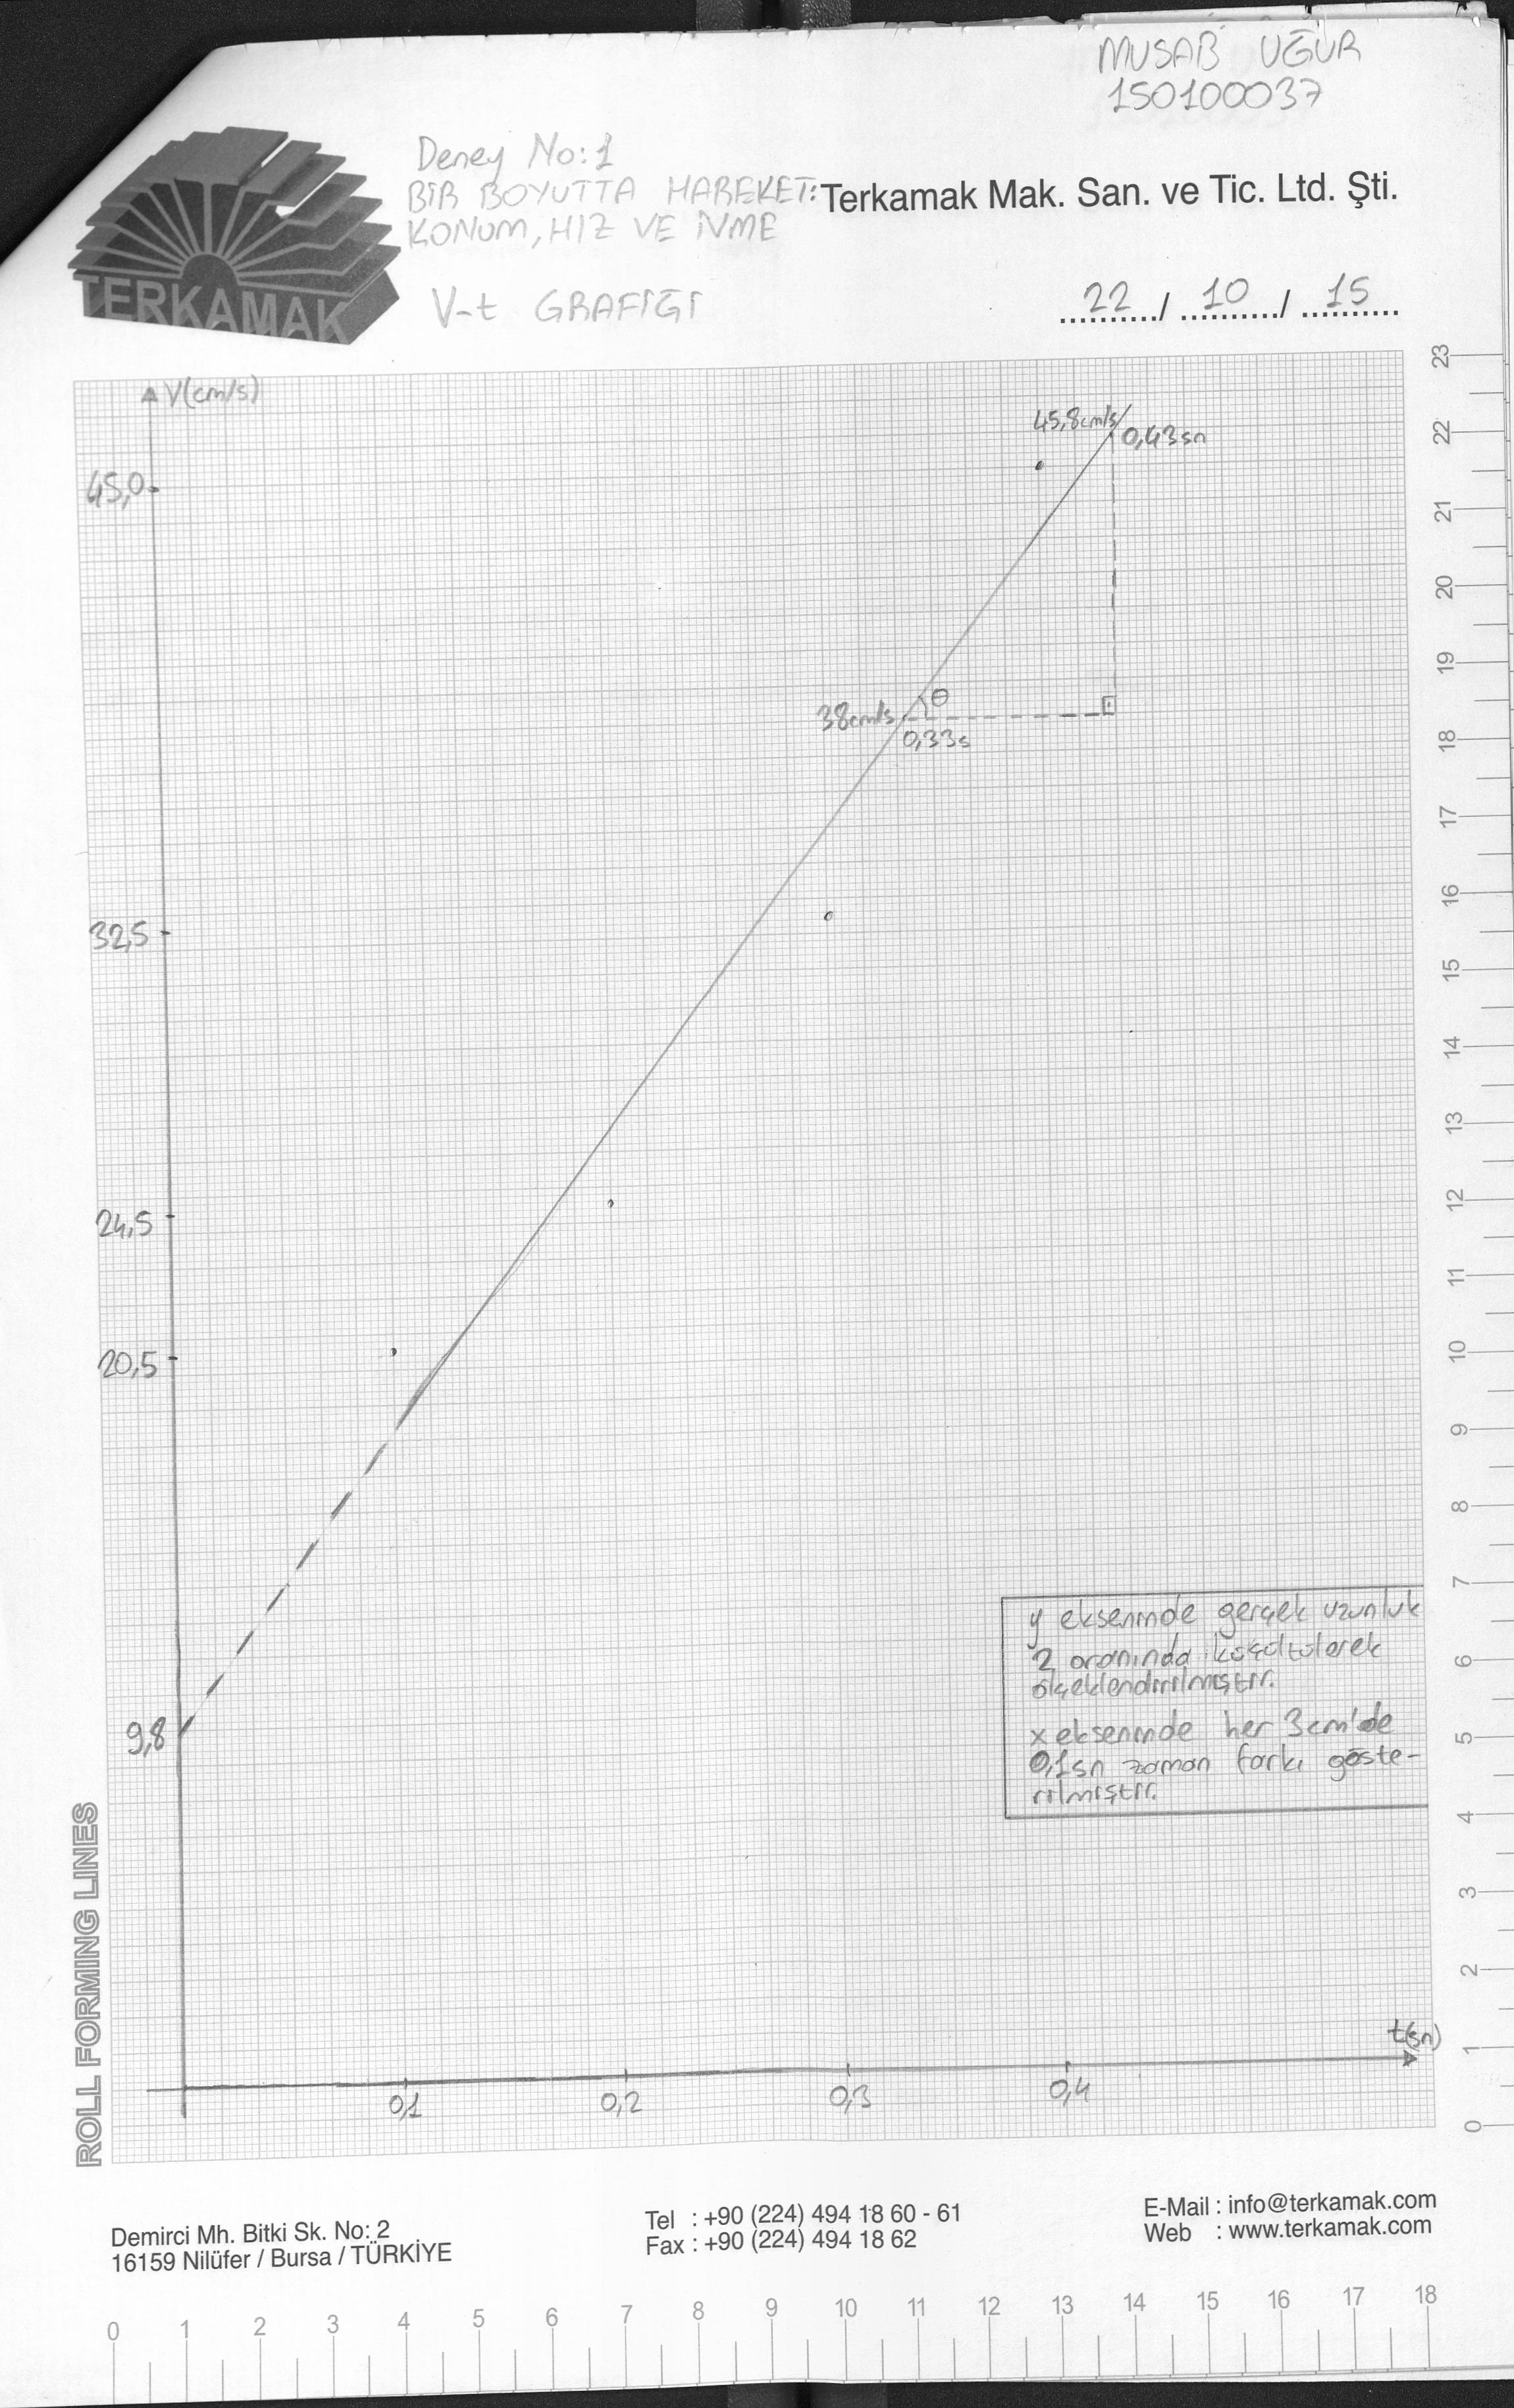 MUSAB UĞUR
150100037
Deney No:1
BİR BOYUTTA HAREKET:
KONUM, HIZ VE İVME
Terkamak Mak. San. ve Tic. Ltd. Şti.
TERKAMAK
V-t GRAFİĞİ
22 / 10 / 15
V(cm/s)
45,0
45,8cm/s
0,43sn
38cm/s
θ
0,33s
32,5
24,5
20,5
9,8
y ekseninde gerçek uzunluk
2 oranında küçültülerek
ölçeklendirilmiştir.
x ekseninde her 3cm'de
0,1sn zaman farkı göste-
rilmiştir.
t(sn)
0,1 0,2 0,3 0,4
23
22
21
20
19
18
17
16
15
14
13
12
11
10
9
8
7
6
5
4
3
2
1
0
ROLL FORMING LINES
Demirci Mh. Bitki Sk. No: 2
16159 Nilüfer / Bursa / TÜRKİYE
Tel : +90 (224) 494 18 60 - 61
Fax : +90 (224) 494 18 62
E-Mail : info@terkamak.com
Web : www.terkamak.com
0 1 2 3 4 5 6 7 8 9 10 11 12 13 14 15 16 17 18